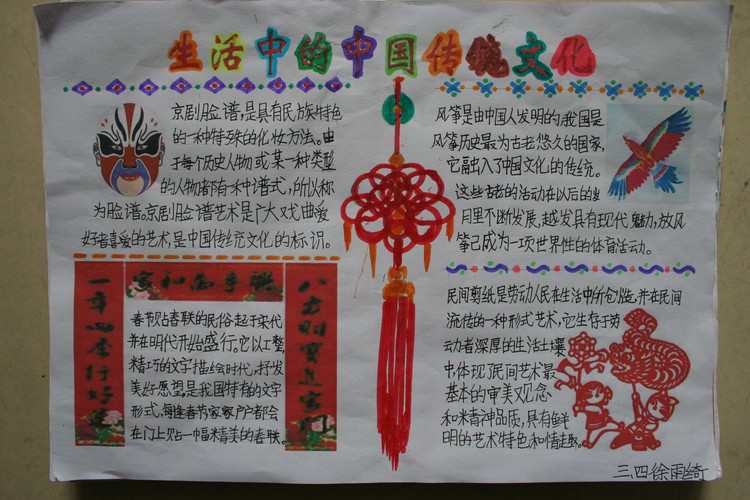 生活中的中国传统文化
京剧脸谱,是具有民族特色
的一种特殊的化妆方法。由
于每个历史人物或某一种类型
的人物都有一种谱式,所以称
为脸谱。京剧脸谱艺术是广大戏曲爱
好者喜爱的艺术,是中国传统文化的标识。
风筝是由中国人发明的,我国是
风筝历史最为古老悠久的国家,
它融入了中国文化的传统。
这些古老的活动在以后的岁
月里不断发展,越发具有现代魅力,放风
筝已成为一项世界性的体育活动。
家和万事兴
一年四季行好运
八方财宝进家门
春节贴春联的民俗起于宋代
并在明代开始盛行。它以工整,
精巧的文字描绘时代,抒发
美好愿望是我国特有的文字
形式,每逢春节家家户户都会
在门上贴一幅精美的春联。
民间剪纸是劳动人民在生活中所创造,并在民间
流传的一种形式艺术,它生存于劳
动者深厚的生活土壤
中体现了民间艺术最
基本的审美观念
和精神品质,具有鲜
明的艺术特色和情趣。
三、四 徐雨绮